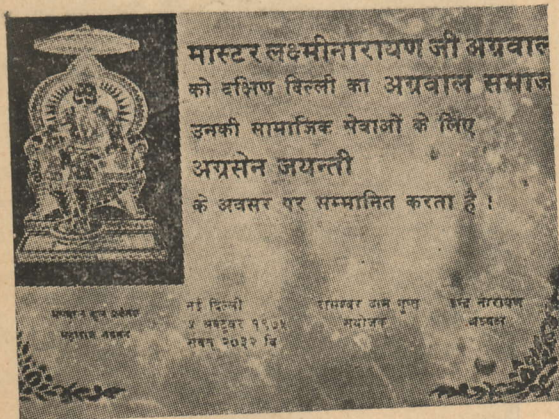 मास्टर लक्ष्मीनारायण जी अग्रवाल
को दक्षिण दिल्ली का अग्रवाल समाज
उनकी सामाजिक सेवाओं के लिए
अग्रसेन जयन्ती
के अवसर पर सम्मानित करता है।
महाराज अग्रसेन
नई दिल्ली
५ अक्टूबर १९७५
संवत् २०३२ वि
रामेश्वर दास गुप्त
संयोजक
इन्द्र नारायण
अध्यक्ष